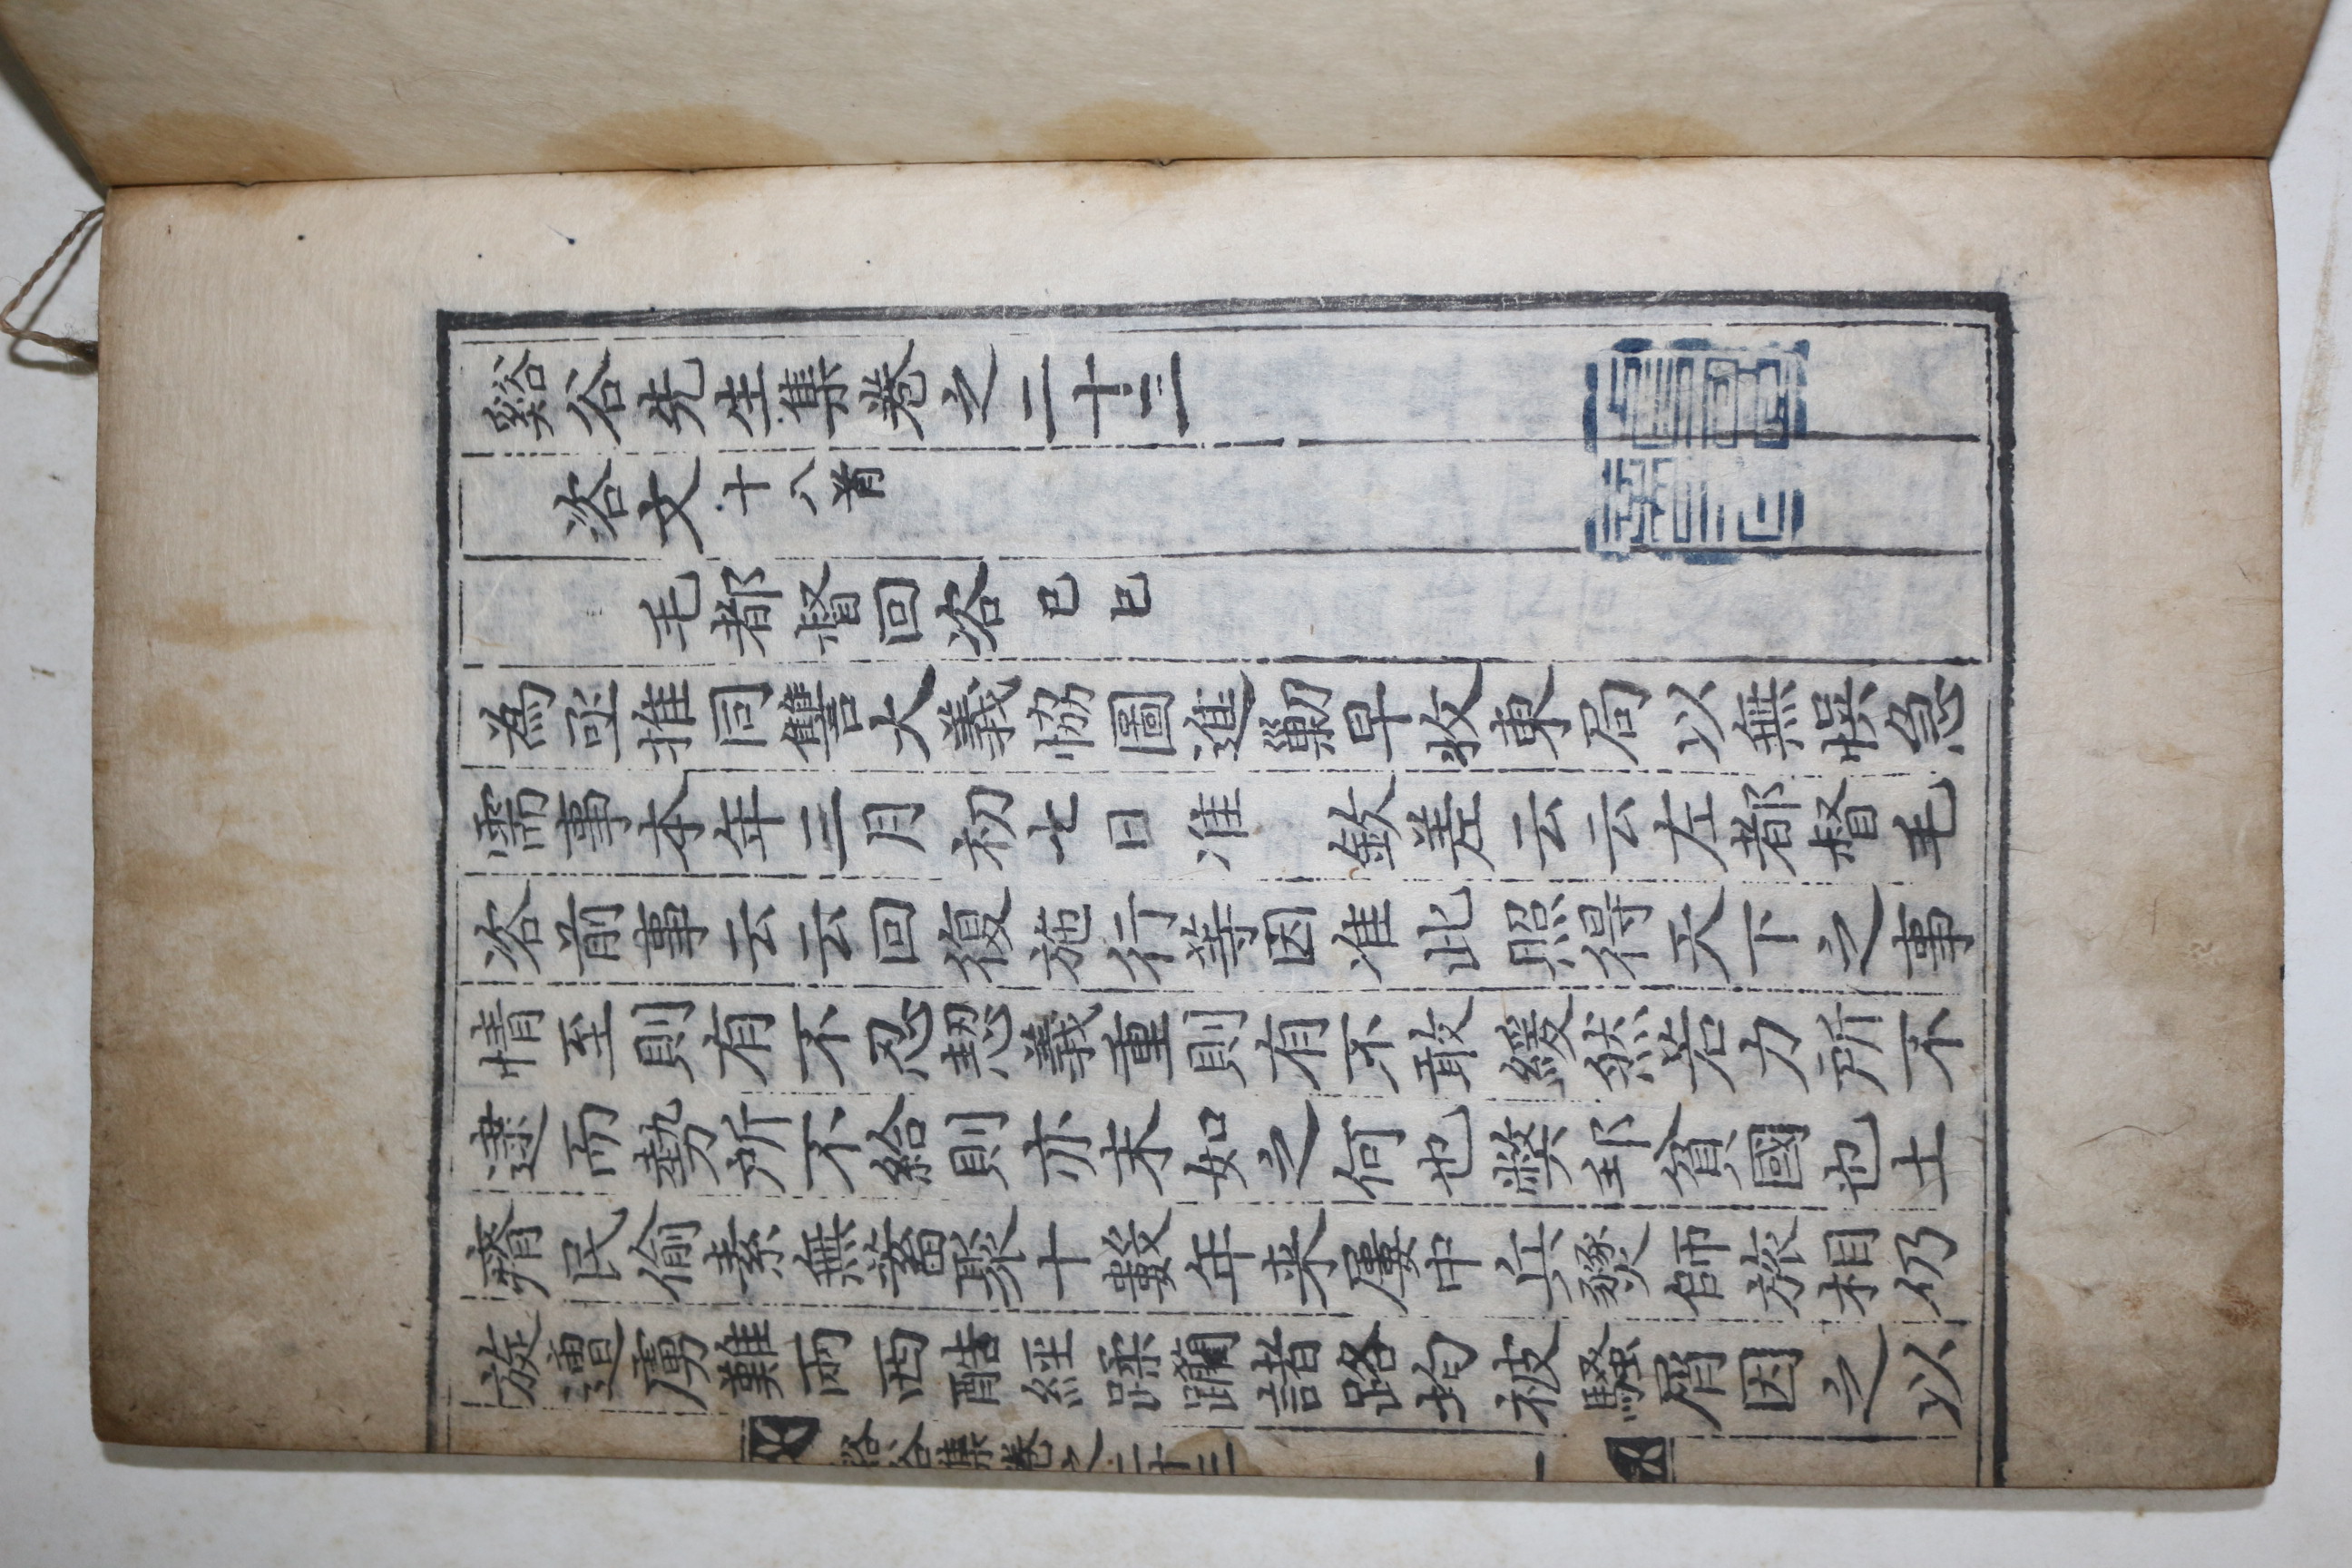 谿谷先生集卷之二十三
咨文十八首
毛都督回咨己巳
為亟推同讐大義恊圖進剿早收東局以無悞急
需事本年三月初七日准 欽差云云左都督毛
咨前事云云回復施行等因准此照得天下之事
情至則有不忍恝義重則有不敢緩然若力所不
逮而勢所不給則亦末如之何也弊邦貧國也土
瘠民偷素無蓄聚十數年来屢中兵燹師旅相仍
旋遭虜難兩西酷經蹂躪諸路均被騷屑因之以
谿谷集卷之二十三 一